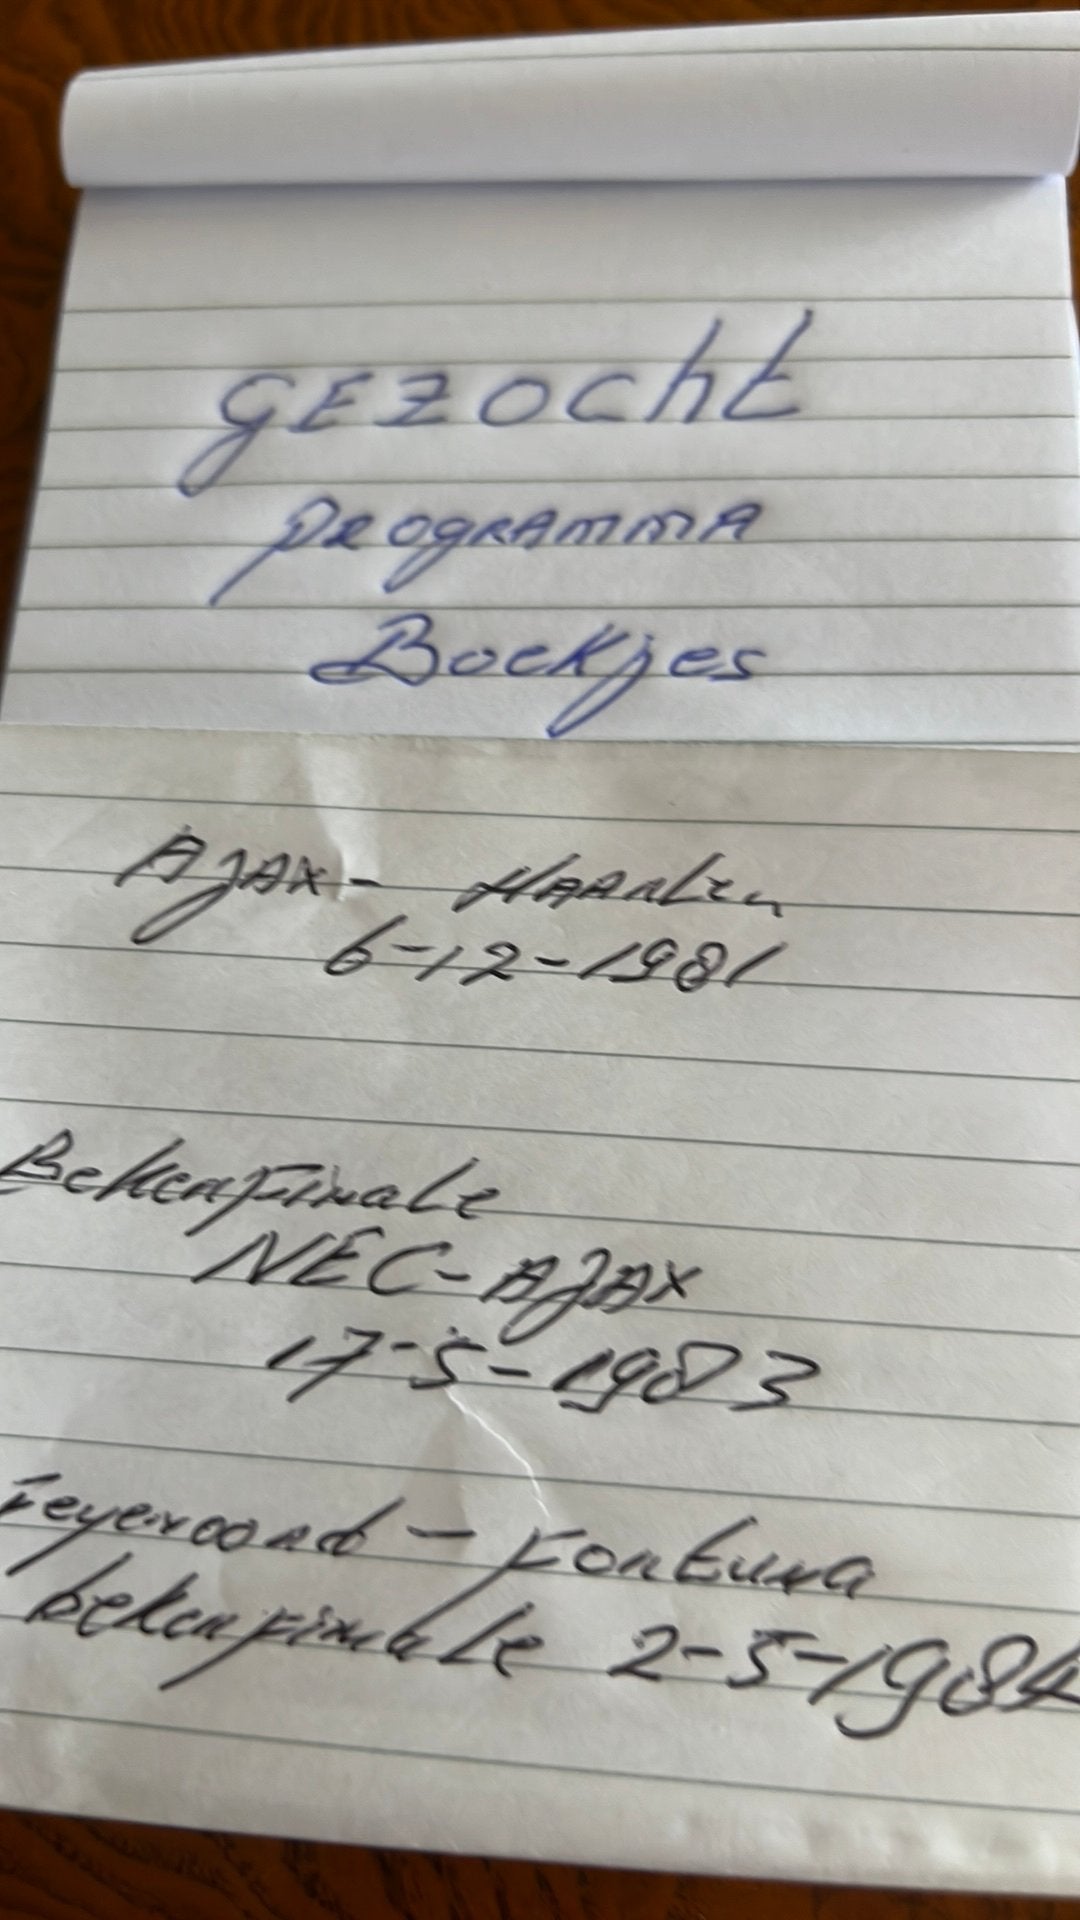 GEZOCHT
PROGRAMMA
Boekjes
AJAX - HAARLEM
6-12-1981
Bekerfinale
NEC - AJAX
17-5-1983
Feyenoord - Fortuna
bekerfinale 2-5-1984